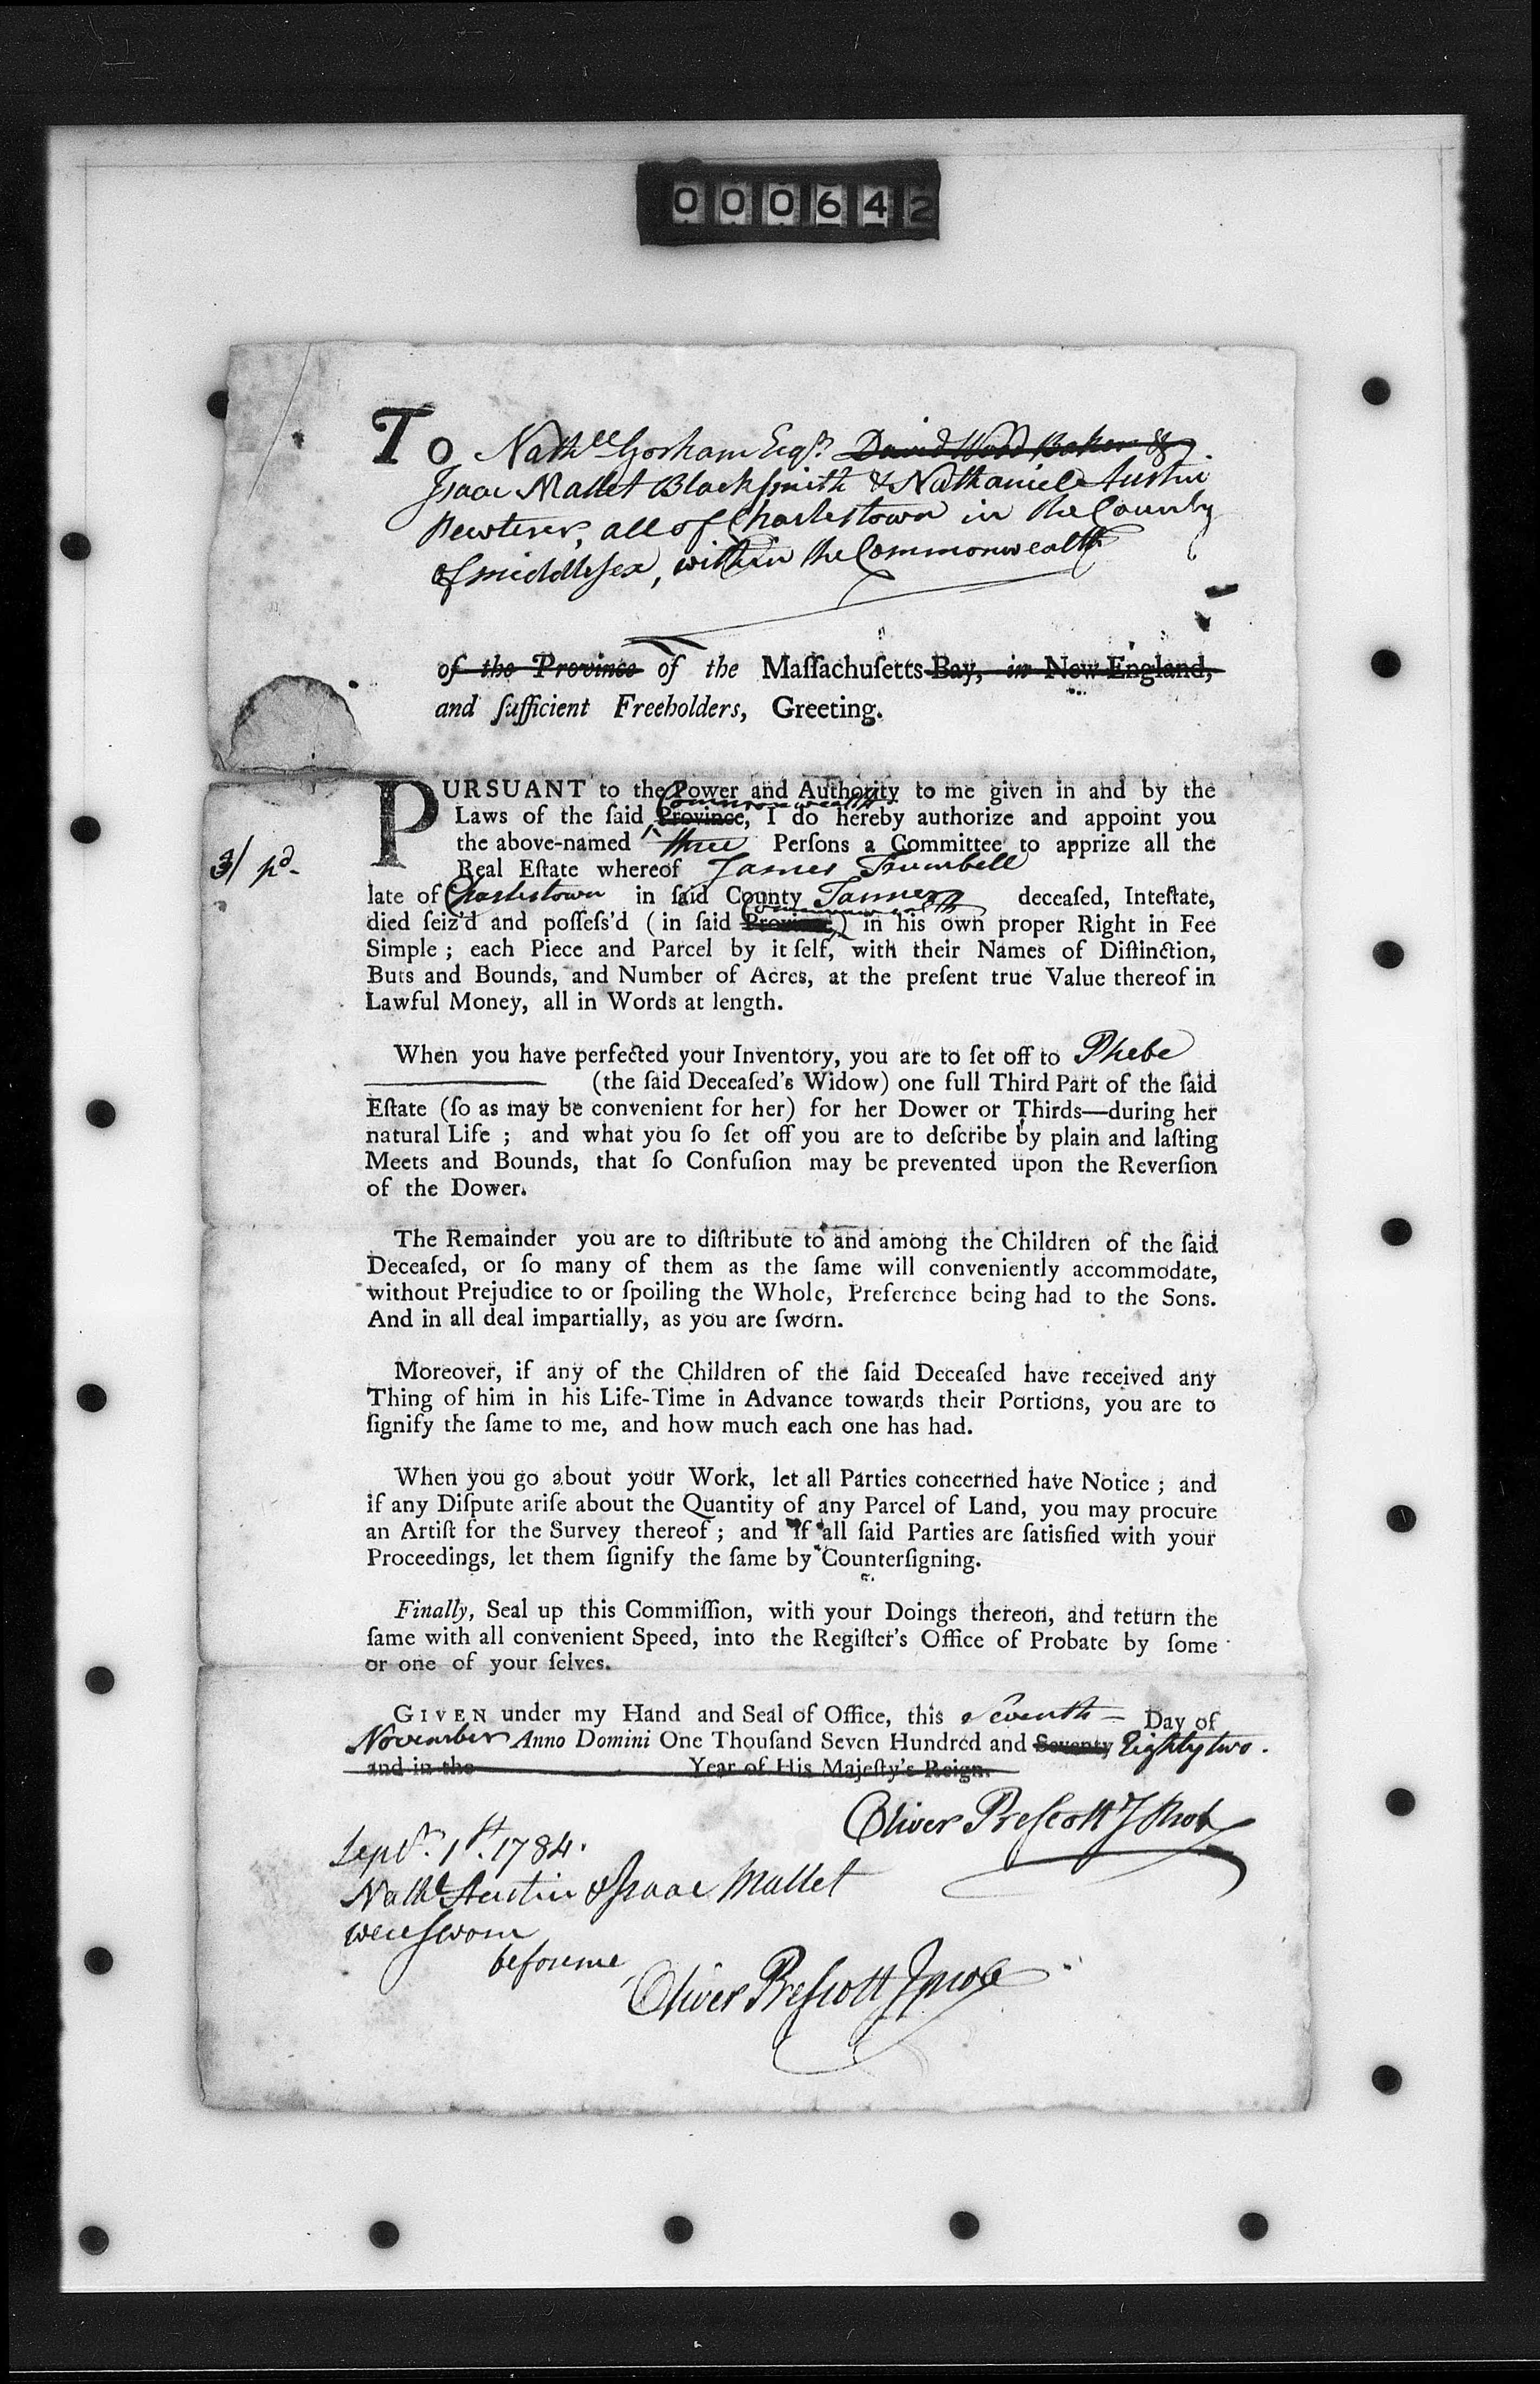 000642
To Nathll Gorham Esqr. David Wood Baker &
Isaac Mallet Blacksmith & Nathaniel Austin
Pewterer, all of Charlestown in the County
of Middlesex, within the Commonwealth
of the Province of the Maſſachuſetts-Bay, in New-England,
and ſufficient Freeholders, Greeting.
PURSUANT to the Power and Authority to me given in and by the
Commonwealth
Laws of the ſaid Province, I do hereby authorize and appoint you
the above-named three Perſons a Committee to apprize all the
Real Eſtate whereof James Trumbell
3/ pd.
late of Charlestown in ſaid County Tanner deceaſed, Inteſtate,
Commonwealth
died ſeiz'd and poſſeſs'd (in ſaid Province) in his own proper Right in Fee
Simple; each Piece and Parcel by it ſelf, with their Names of Diſtinction,
Buts and Bounds, and Number of Acres, at the preſent true Value thereof in
Lawful Money, all in Words at length.
When you have perfected your Inventory, you are to ſet off to Phebe
(the ſaid Deceaſed's Widow) one full Third Part of the ſaid
Eſtate (ſo as may be convenient for her) for her Dower or Thirds—during her
natural Life; and what you ſo ſet off you are to deſcribe by plain and laſting
Meets and Bounds, that ſo Confuſion may be prevented upon the Reverſion
of the Dower.
The Remainder you are to diſtribute to and among the Children of the ſaid
Deceaſed, or ſo many of them as the ſame will conveniently accommodate,
without Prejudice to or ſpoiling the Whole, Preference being had to the Sons.
And in all deal impartially, as you are ſworn.
Moreover, if any of the Children of the ſaid Deceaſed have received any
Thing of him in his Life-Time in Advance towards their Portions, you are to
ſignify the ſame to me, and how much each one has had.
When you go about your Work, let all Parties concerned have Notice; and
if any Diſpute ariſe about the Quantity of any Parcel of Land, you may procure
an Artiſt for the Survey thereof; and if all ſaid Parties are ſatisfied with your
Proceedings, let them ſignify the ſame by Counterſigning.
Finally, Seal up this Commiſſion, with your Doings thereon, and return the
ſame with all convenient Speed, into the Regiſter's Office of Probate by ſome
or one of your ſelves.
GIVEN under my Hand and Seal of Office, this Seventh Day of
November Anno Domini One Thouſand Seven Hundred and Seventy Eighty two.
and in the Year of His Majeſty's Reign.
Oliver Preſcott J Prob
Septr. 1st. 1784.
Nathl Austin & Isaac Mallet
were ſworn
before me
Oliver Preſcott J prob